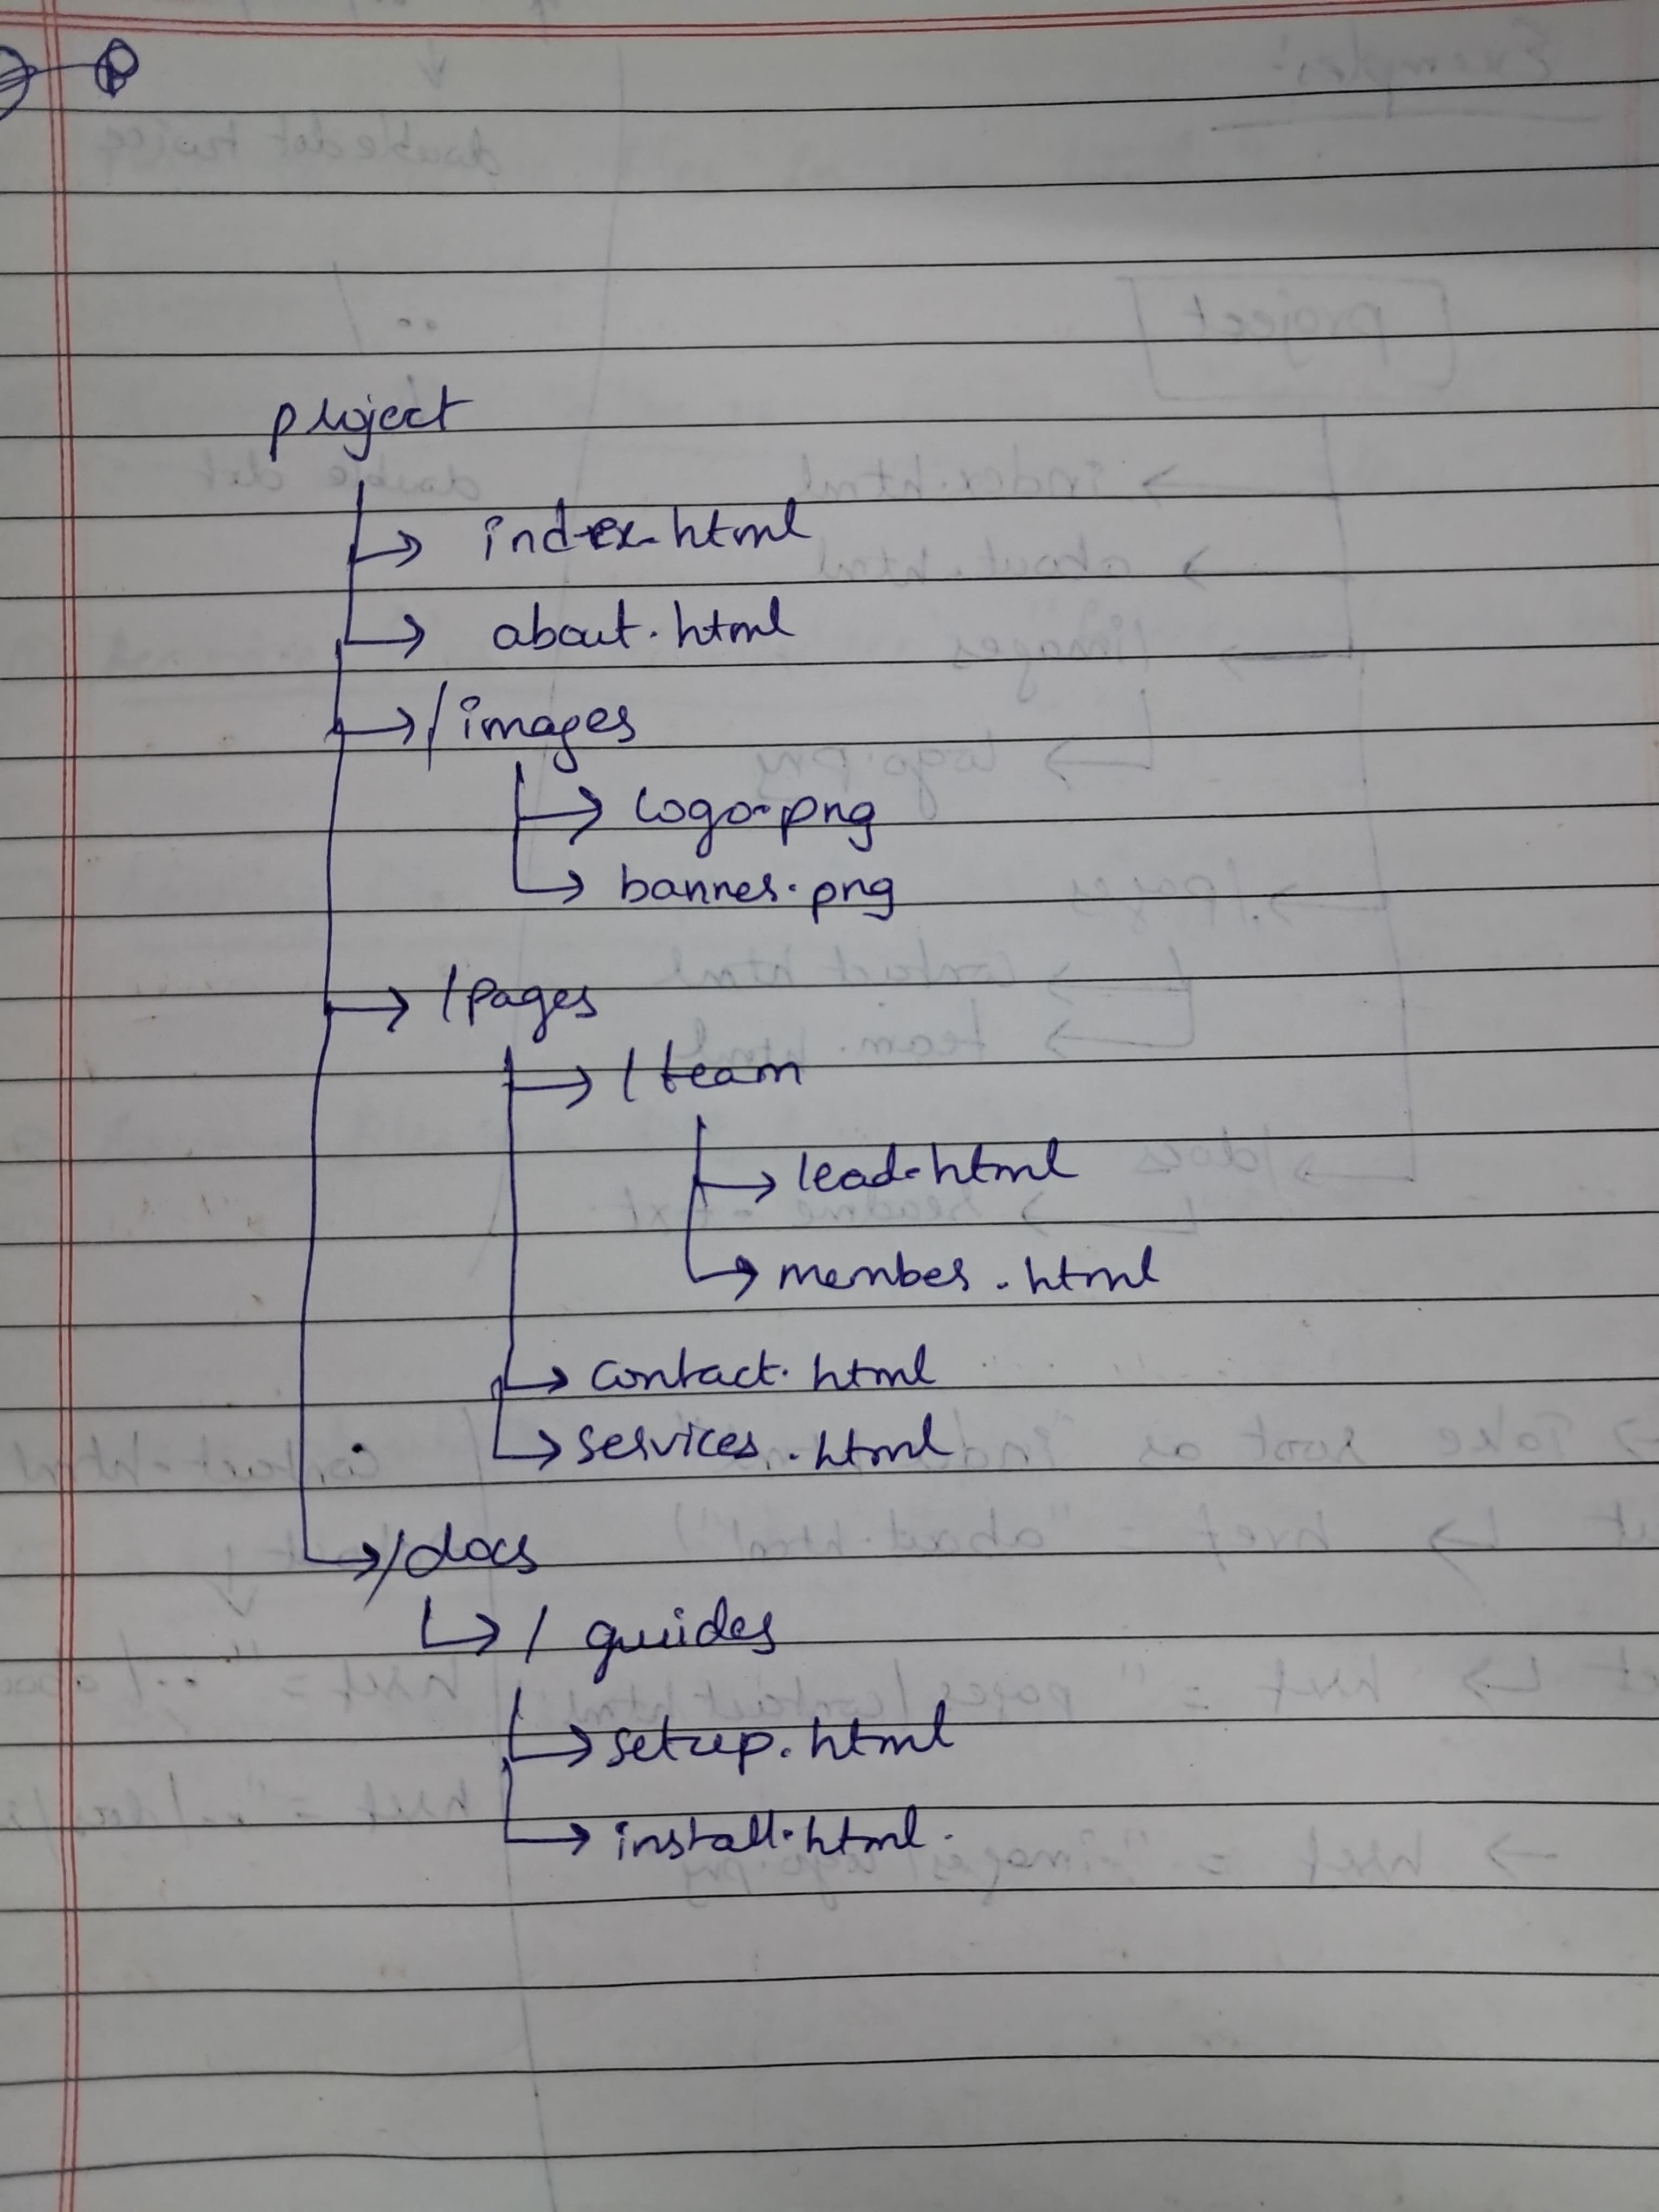 project
index.html
about.html
/images
logo.png
banner.png
/pages
/team
lead.html
member.html
contact.html
services.html
/docs
/guides
setup.html
install.html.